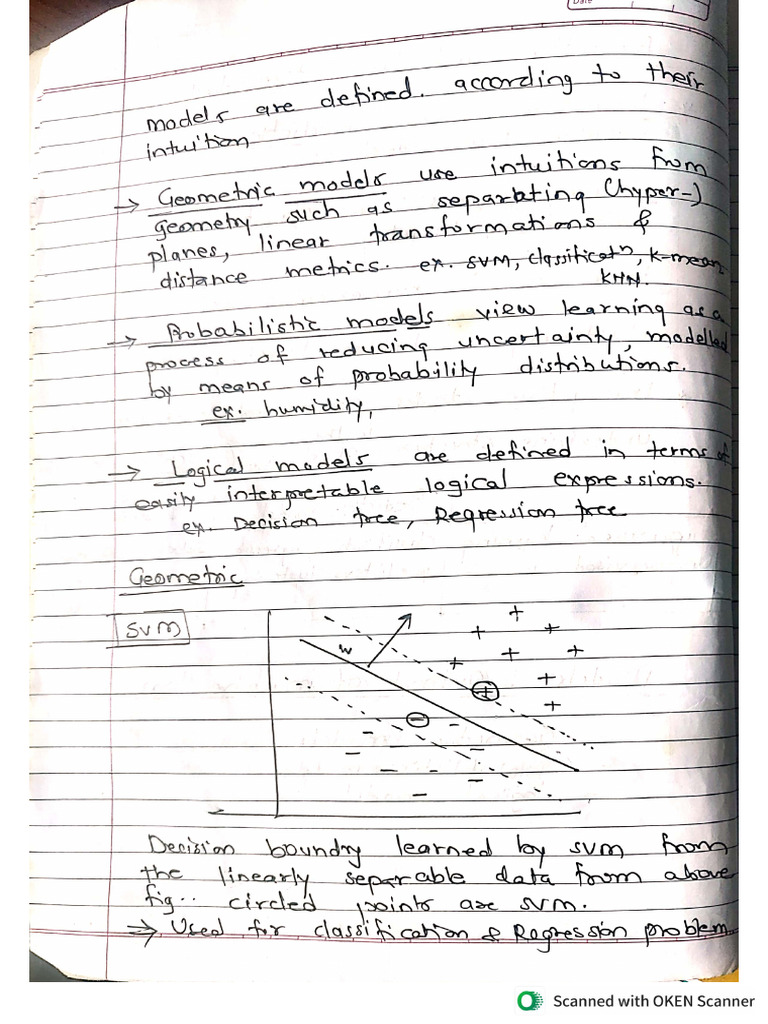 Date
models are defined. according to their
intuition
→ Geometric models use intuitions from
geometry such as separating (hyper-)
planes, linear transformations &
distance metrics. ex. SVM, classificatⁿ, k-mean,
KNN.
→ Probabilistic models view learning as a
process of reducing uncertainty, modelled
by means of probability distributions.
ex. humidity,
→ Logical models are defined in terms of
easily interpretable logical expressions.
ex. Decision tree, Regression tree
Geometric
SVM
w
Decision boundry learned by SVM from
the linearly separable data from above
fig.. circled points are SVM.
→ Used for classification & Regression problem
Scanned with OKEN Scanner